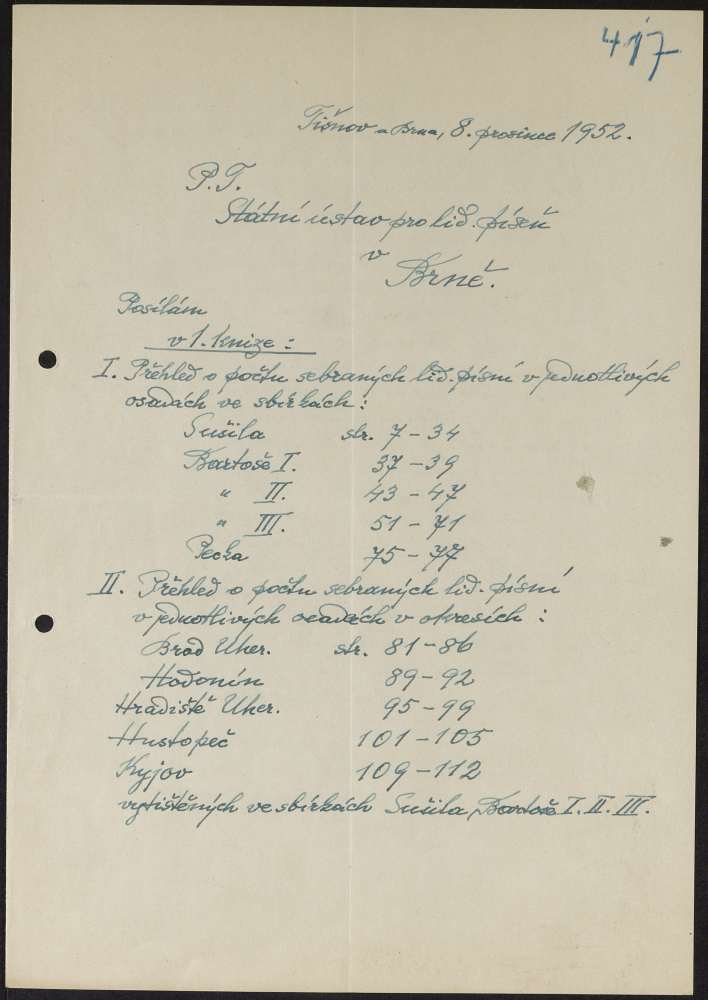 417
Tišnov u Brna, 8. prosince 1952.
P.T.
Státní ústav pro lid. píseň
v
Brně.
Posílám
v 1. knize :
I. Přehled o počtu sebraných lid. písní v jednotlivých
osadách ve sbírkách :
Sušila str. 7 - 34
Bartoše I. 37 - 39
" II. 43 - 47
" III. 51 - 71
Pecka 75 - 77
II. Přehled o počtu sebraných lid. písní
v jednotlivých osadách v okresích :
Brod Uher. str. 81 - 86
Hodonín 89 - 92
Hradiště Uher. 95 - 99
Hustopeč 101 - 105
Kyjov 109 - 112
vytištěných ve sbírkách Sušila, Bartoše I. II. III.